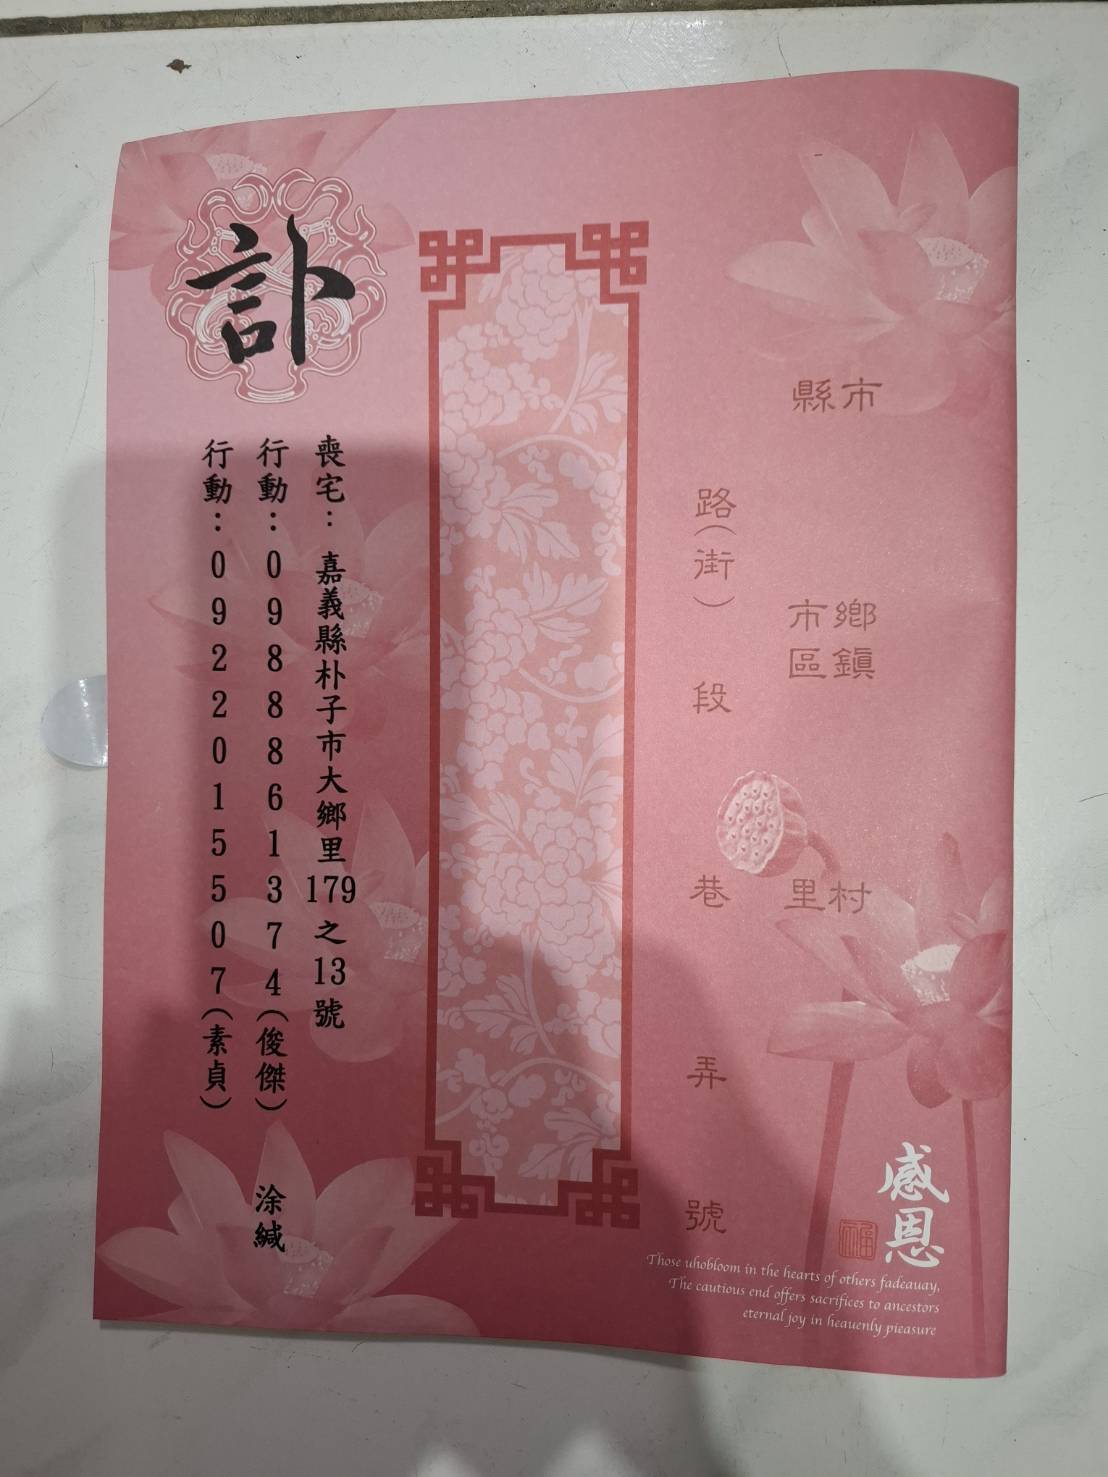 縣市
鄉鎮
市區
村里
路(街)段巷弄號
訃
喪宅：嘉義縣朴子市大鄉里179之13號
行動：0988861374(俊傑)
行動：0922015507(素貞)
涂緘
感恩
Those uhobloom in the hearts of others fadeauay,
The cautious end offers sacrifices to ancestors
eternal joy in heauenly pieasure